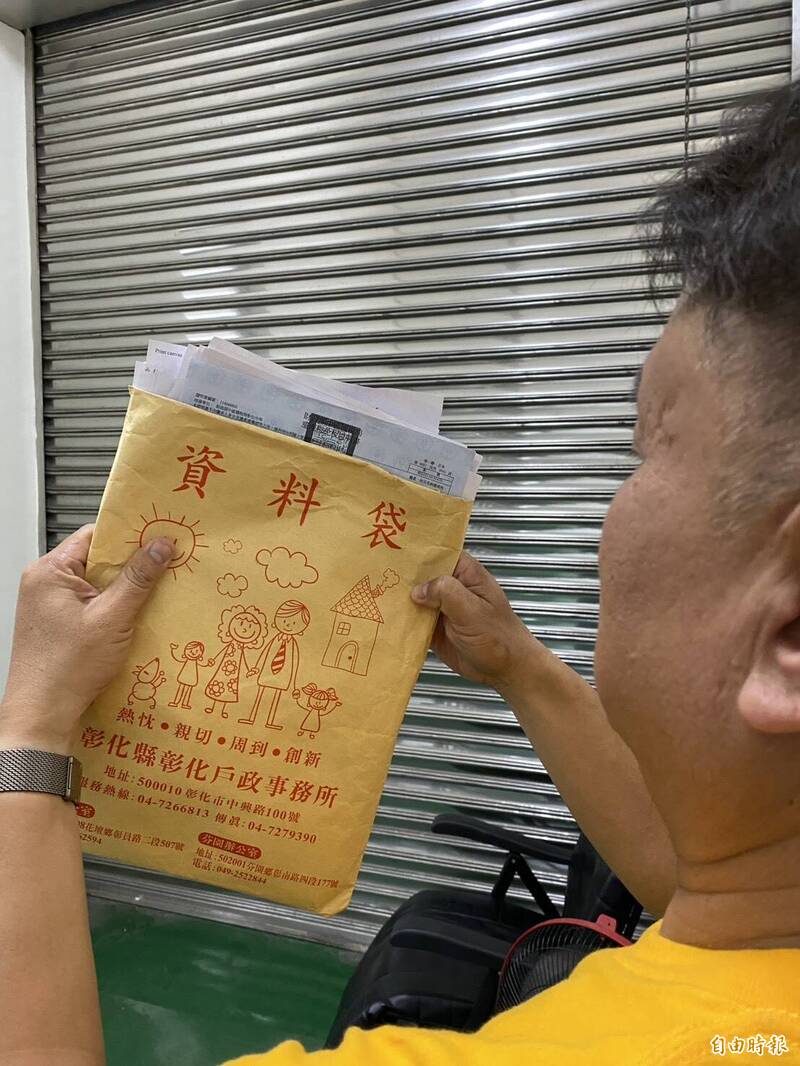 Print canvas
資料袋
熱忱•親切•周到•創新
彰化縣彰化戶政事務所
地址：500010 彰化市中興路100號
服務熱線：04-7266813 傳真：04-7279390
花壇鄉彰員路二段507號
2594
芬園辦公室
地址：502001芬園鄉彰南路四段177號
電話：049-2522844
自由時報